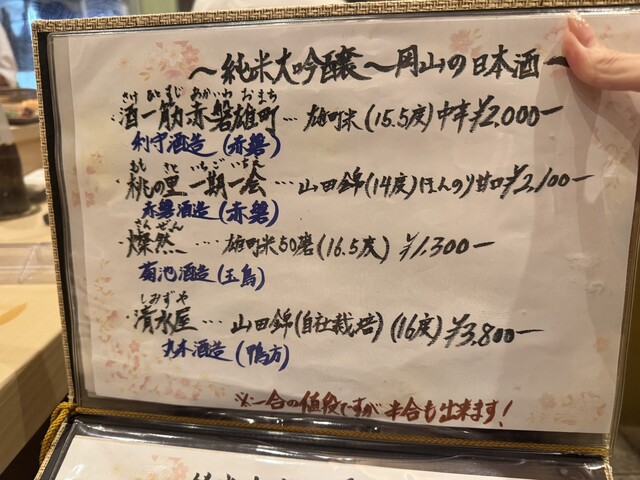 ～純米大吟醸～岡山の日本酒～
さけ ひとすじ あかいわ おまち
・酒一筋赤磐雄町…雄町米(15.5度)中辛¥2,000ー
利守酒造(赤磐)
もも さと いちごいちえ
・桃の里 一期一会…山田錦(14度)ほんのり甘口¥2,100ー
赤磐酒造(赤磐)
さんぜん
・燦然…雄町米50磨(16.5度) ¥1,300ー
菊池酒造(玉島)
しみずや
・清水屋…山田錦(自社栽培)(16度)¥3,800ー
丸本酒造(鴨方)
※一合の値段ですが半合も出来ます!